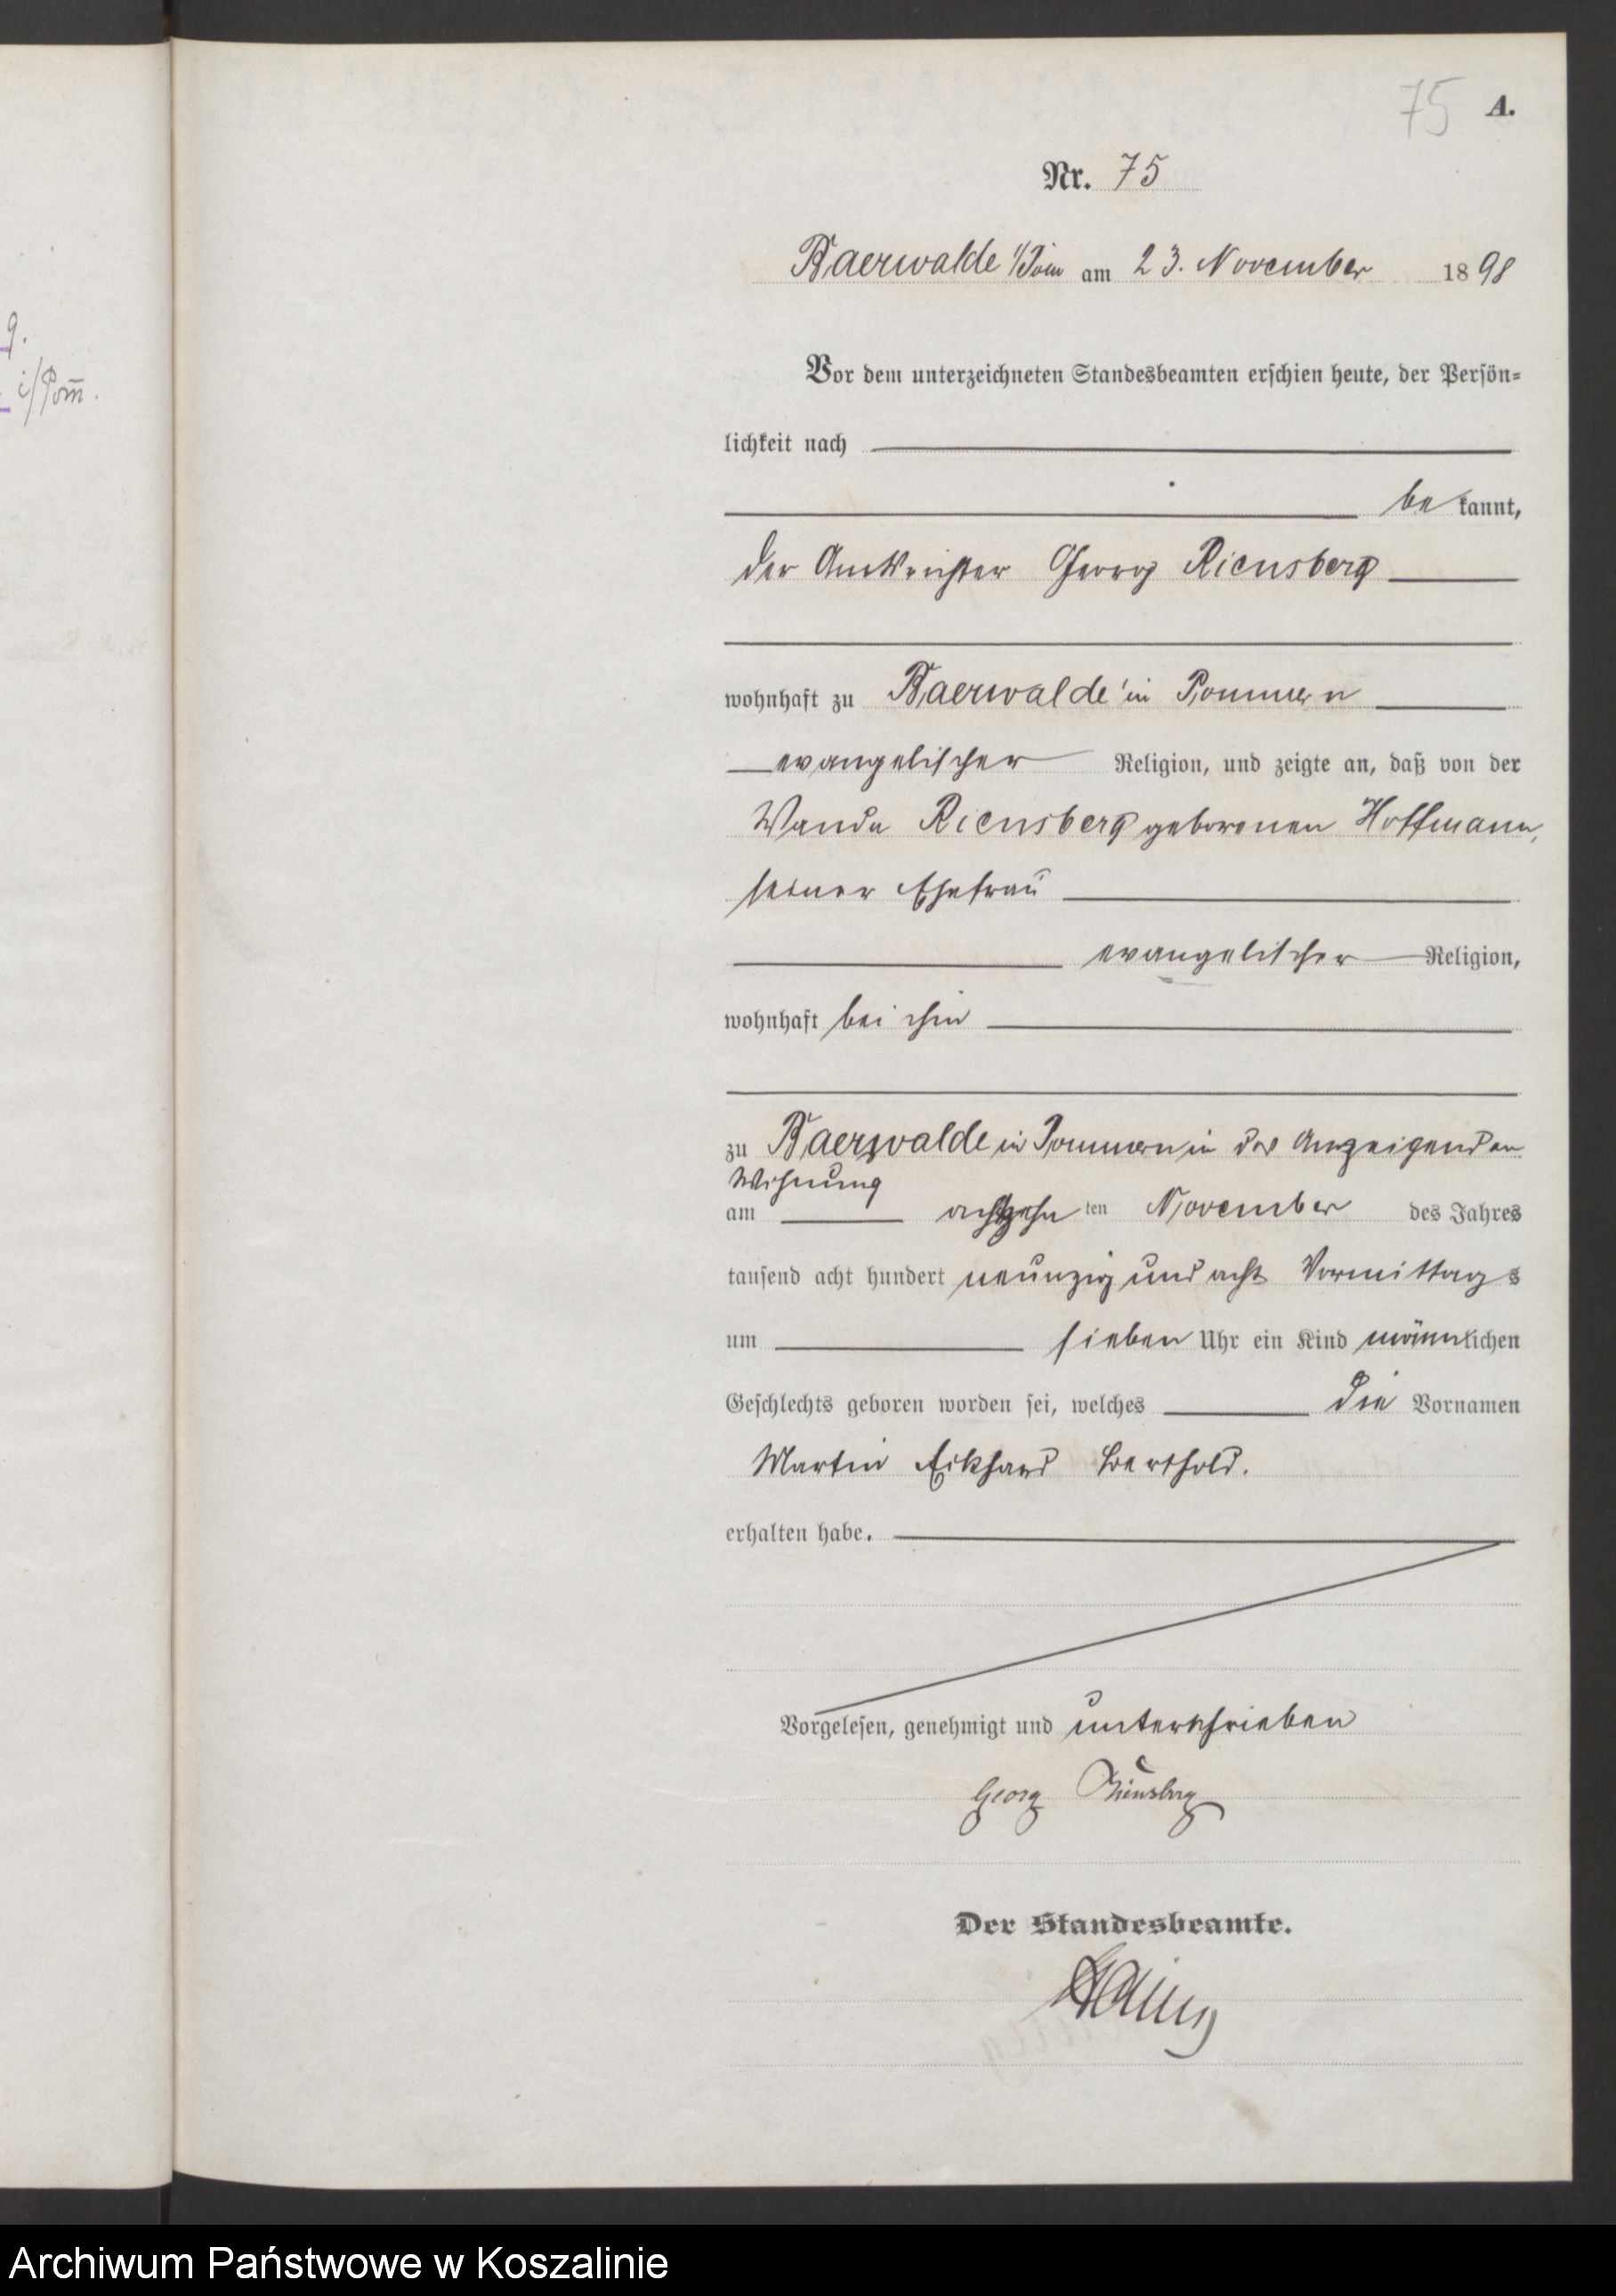 g.
i/Pom̅.
75 A.
Nr. 75
Baerwalde i/Pom am 23. November 1898
Vor dem unterzeichneten Standesbeamten erschien heute, der Persön=
lichkeit nach
be kannt,
der Amtsrichter Georg Riensberg
wohnhaft zu Baerwalde in Pommern
evangelischer Religion, und zeigte an, daß von der
Wanda Riensberg geborenen Hoffmann,
seiner Ehefrau
evangelischer Religion,
wohnhaft bei ihm
zu Baerwalde in Pommern in des Anzeigenden
Wohnung
am achtzehn ten November des Jahres
tausend acht hundert neunzig und acht Vormittags
um sieben Uhr ein Kind männlichen
Geschlechts geboren worden sei, welches die Vornamen
Martin Eikhard Berthold.
erhalten habe.
Vorgelesen, genehmigt und unterschrieben
Georg Riensberg
Der Standesbeamte.
Archiwum Państwowe w Koszalinie